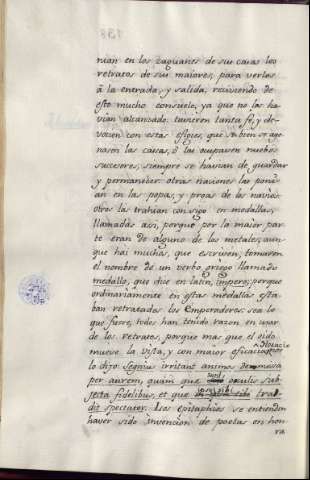 nian en los zaguanes de sus casas los
retratos de sus maiores, para verlos
â la entrada, y salida, reciviendo de
esto mucho consuelo, ya que no los ha
vian alcanzado: tuvieron tanta fe, y de
vocion con estas efigies, que si bien se age
nasen las casas, ô las ocupasen nuebos
sucesores, siempre se havian de guardar
y permanecer: otras naciones las poni
an en las popas, y proas de los navios:
otros las trahian consigo en medallas,
llamadas asi, porque por la maior par
te eran de alguno de los metales, aun
que hai muchos, que escriven, tomaron
el nombre de un verbo griego llamado
medallo, que dice en latin, impero; porque
ordinariamente en estas medallas esta
ban retratados los Emperadores: sea lo
que fuere, todos han tenido razon en usar
de los retratos, porque mas que el oido
mueve la vista, y con maior eficacia Horacio
lo dijo: Segnius irritant animos demissa
per aurem, quam que sunt oculis sub
jecta fidelibus, et que ipse sibi tra
dit spectator. Los epitaphios se entienden
haver sido invencion de poetas en hon
ra